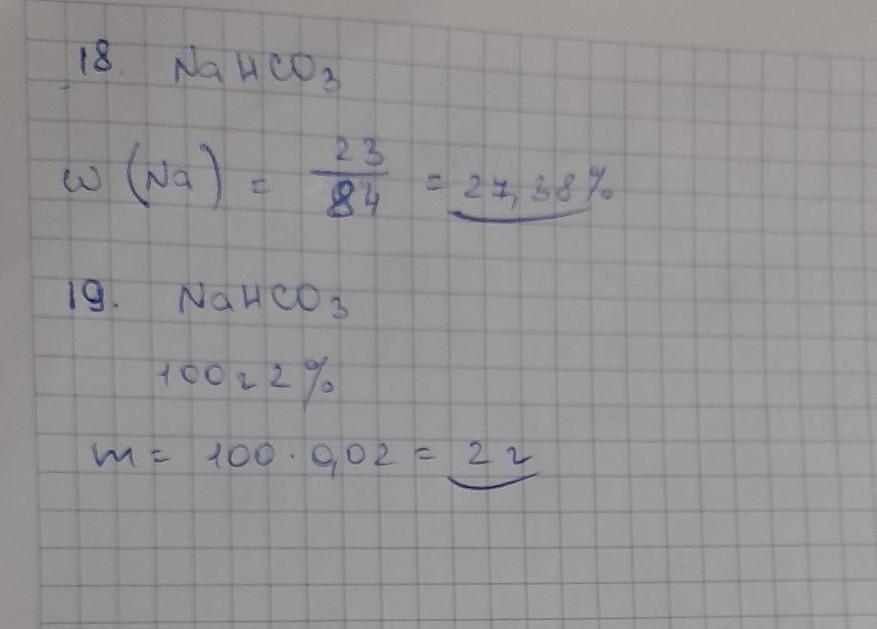 18. NaHCO₃
ω (Na) = 23/84 = 27,38%
19. NaHCO₃
100г 2%
m = 100 · 0,02 = 2г